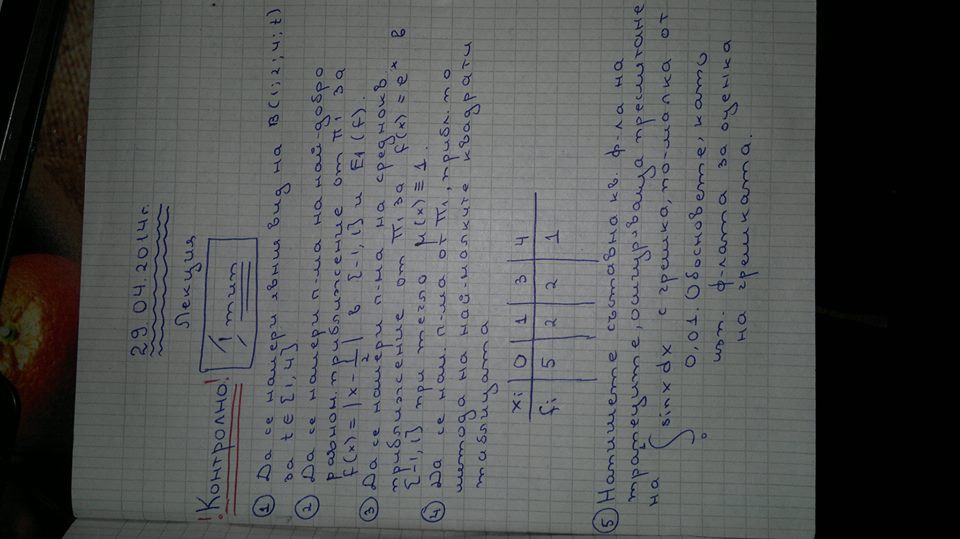 29.04.2014г.
Лекция
! Контролно!
1 тип
① Да се намери явния вид на B(1;2;4;t)
за t∈[1,4]
② Да се намери п-ма на най-добро
равном. приближение от π₁ за
f(x)=|x-1/2| в [-1,1] и E₁(f).
③ Да се намери п-на на среднокв.
приближение от π₁ за f(x)=eˣ в
[-1,1] при тегло μ(x)≡1.
④ Да се нам. п-ма от π₁, прибл. по
метода на най-малките квадрати
таблицата
xᵢ 0 1 3 4
fᵢ 5 2 2 1
⑤ Напишете съставна кв. ф-ла на
трапеците, осигуряваща пресмятане
на ∫ sinxdx с грешка, по-малка от
0,01. Обосновете, като
изп. ф-лата за оценка
на грешката.